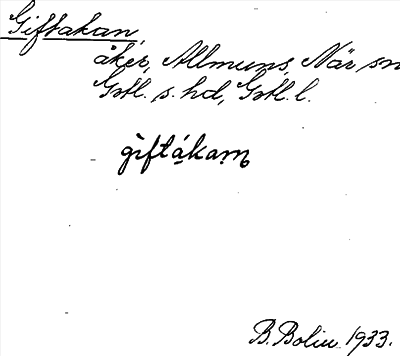 Giftakan,
åker, Allmuns, När sn
Gotl. s. hd, Gotl. l.
giftákam
B. Bolin 1933.